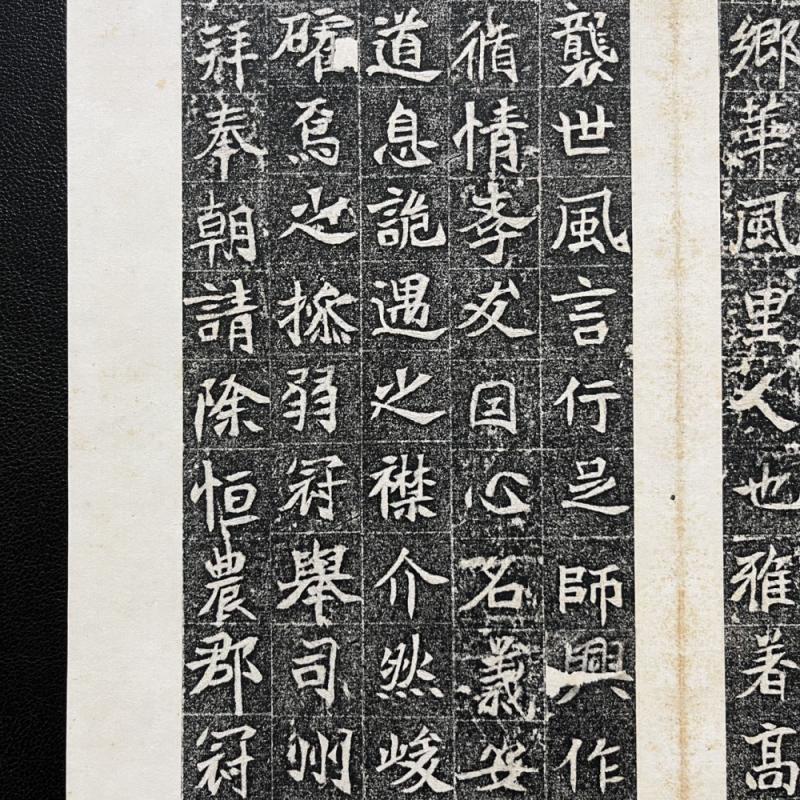 鄉華風里人也雅着高
襲世風言行是師興作
循情孝友因心名義安
道息詭遇之襟介然峻
礭焉之操弱冠舉司州
拜奉朝請除恒農郡冠